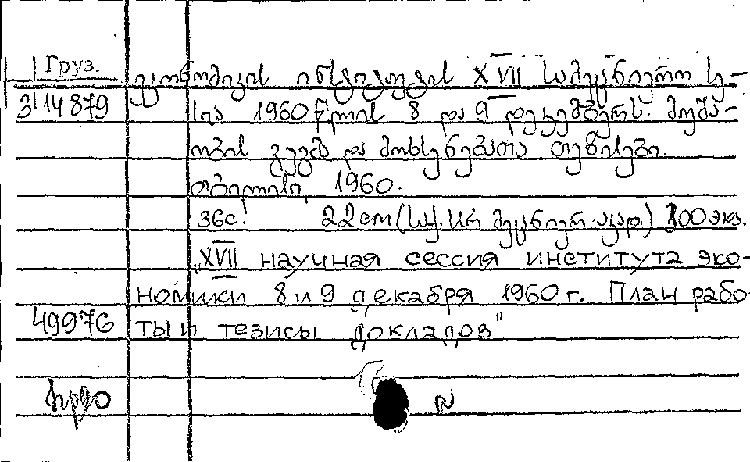 Груз.
ეკონომიკის ინსტიტუტის XVII სამეცნიერო სე-
3/14879 სია 1960 წლის 8 და 9 დეკემბერს. მუშა-
ობის გეგმა და მოხსენებათა თეზისები.
თბილისი, 1960.
36с. 22 cm (საქ. სსრ მეცნიერ. აკად.) 300 экз.
„XVII научная сессия института эко-
номики 8 и 9 декабря 1960 г. План рабо-
49976 ты и тезисы докладов"